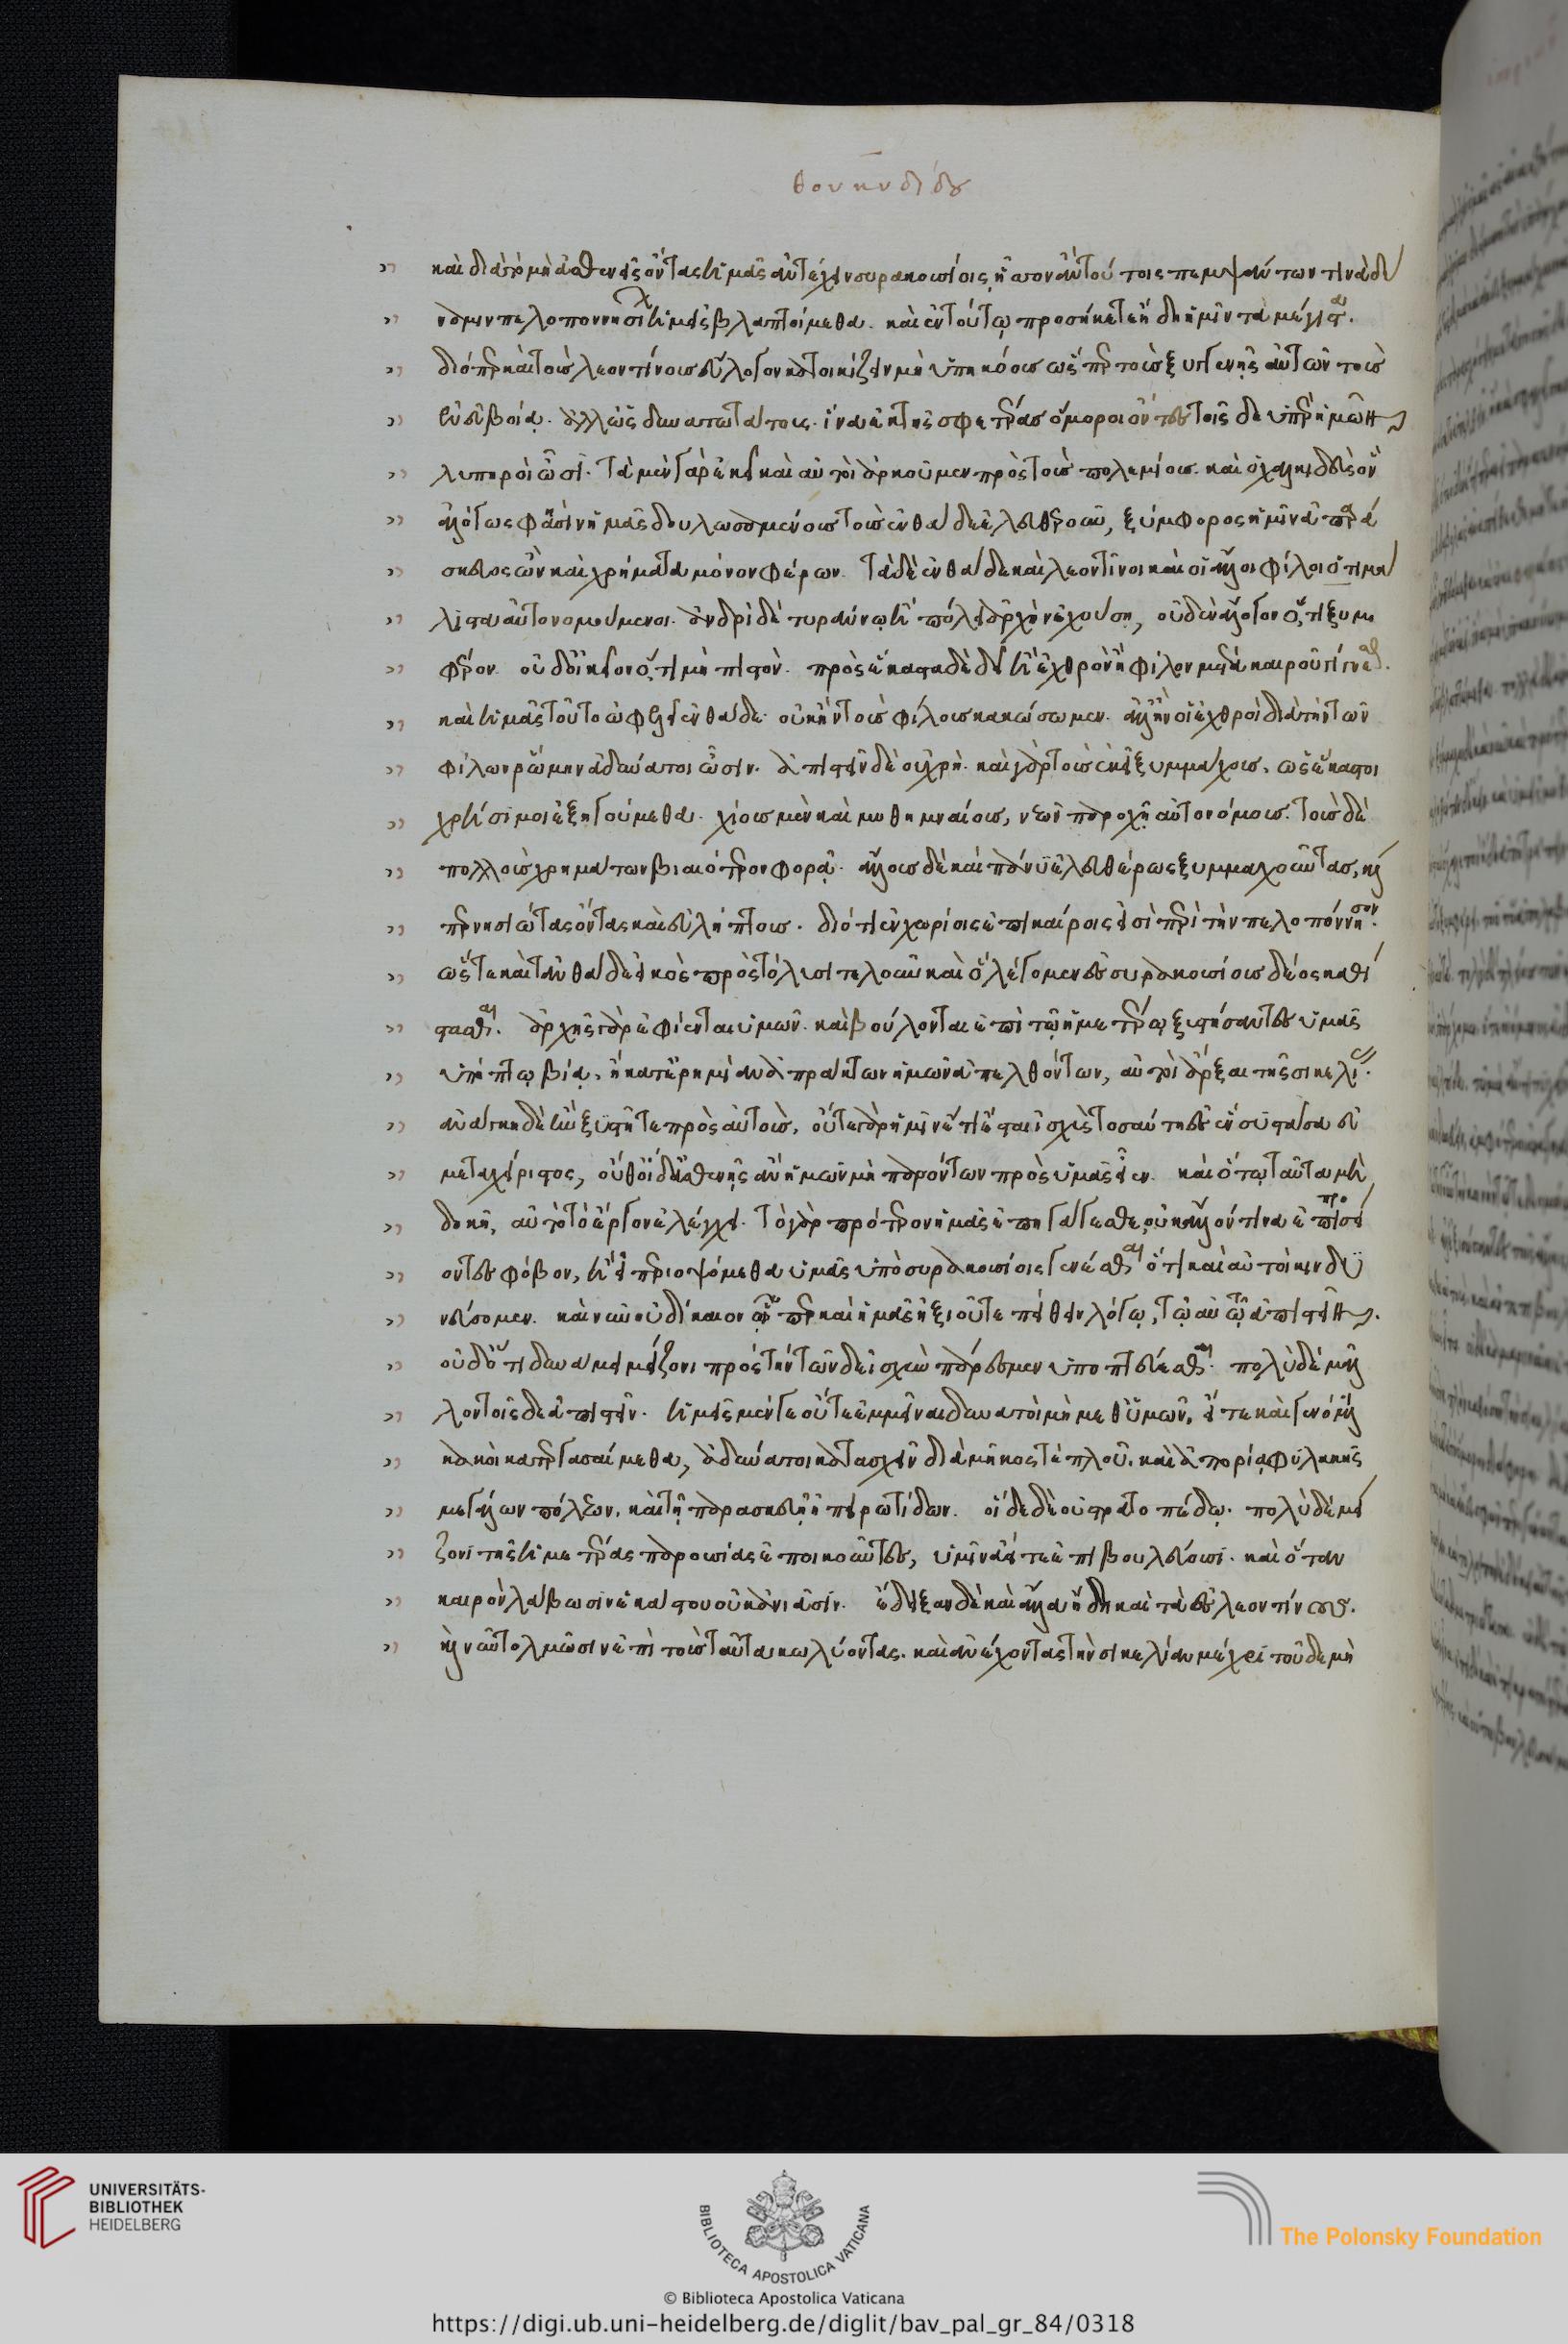 θουκυδίδου
καὶ διὰ τὸ μὴ ἀσθενεῖς ὄντας ἡμᾶς ἀντέχειν συρακοσίοις, ἧσσον ἂν τούτοις πεμψάντων τινὰ δύ
ναμιν πελοποννησίοις ἡμεῖς βλαπτοίμεθα. καὶ ἐν τούτῳ προσήκετε ἤδη ἡμῖν τὰ μέγιστα.
διόπερ καὶ τοὺς λεοντίνους εὔλογον κατοικίζειν μὴ ὑπηκόους ὥσπερ τοὺς ξυγγενεῖς αὐτῶν τοὺς
ἐν εὐβοίᾳ. ἀλλ' ὡς δυνατωτάτους. ἵνα ἐκ τῆς σφετέρας ὅμοροι ὄντες τοῖσδε ὑπὲρ ἡμῶν
λυπηροὶ ὦσι. τὰ μὲν γὰρ ἐκεῖ καὶ αὐτοὶ ἀρκοῦμεν πρὸς τοὺς πολεμίους. καὶ ὁ χαλκιδεὺς ὃν
ἀλόγως φασὶν ἡμᾶς δουλωσαμένους τοὺς ἐνθάδε ἐλευθεροῦν, ξύμφορος ἡμῖν ἀπαρά
σκευος ὢν καὶ χρήματα μόνον φέρων. τὰ δὲ ἐνθάδε καὶ λεοντῖνοι καὶ οἱ ἄλλοι φίλοι ὅτι μά
λιστα αὐτονομούμενοι. ἀνδρὶ δὲ τυράννῳ ἢ πόλει ἀρχὴν ἐχούσῃ, οὐδὲν ἄλογον ὅ,τι ξυμ
φέρον. οὐδ' οἰκεῖον ὅ,τι μὴ πιστὸν. πρὸς ἕκαστα δὲ δεῖ ἢ ἐχθρὸν ἢ φίλον μετὰ καιροῦ γίγνεσθαι.
καὶ ἡμᾶς τοῦτο ὠφελεῖ ἐνθάδε. οὐκ ἢν τοὺς φίλους κακώσωμεν. ἀλλ' ἢν οἱ ἐχθροὶ διὰ τὴν τῶν
φίλων ῥώμην ἀδύνατοι ὦσιν. ἀπιστεῖν δὲ οὐ χρή. καὶ γὰρ τοὺς ἐκεῖ ξυμμάχους. ὡς ἕκαστοι
χρήσιμοι ἐξηγούμεθα. χίους μὲν καὶ μηθυμναίους, νεῶν παροχῇ αὐτονόμους. τοὺς δὲ
πολλοὺς χρημάτων βιαιότερον φορᾷ. ἄλλους δὲ καὶ πάνυ ἐλευθέρως ξυμμαχοῦντας, καί
περ νησιώτας ὄντας καὶ εὐλήπτους. διότι ἐν χωρίοις ἐπικαίροις εἰσὶ περὶ τὴν πελοπόννησον.
ὥστε καὶ τἀνθάδε εἰκὸς πρὸς τὸ λυσιτελοῦν καὶ ὃ λέγομεν ἐς συρακοσίους δέος καθί
στασθαι. ἀρχῆς γὰρ ἐφίενται ὑμῶν. καὶ βούλονται ἐπὶ τῷ ἡμετέρῳ ξυστήσαντες ὑμᾶς
ὑπόπτῳ βίᾳ, ἢ κατ' ἐρημίαν ἀπράκτων ἡμῶν ἀπελθόντων, αὐτοὶ ἄρξαι τῆς σικελίας.
ἀνάγκη δὲ ἢν ξυστῆτε πρὸς αὐτοὺς. οὔτε γὰρ ἡμῖν ἔτι ἔσται ἰσχὺς τοσαύτη ἐς ἓν ξυστᾶσα εὐ
μεταχείριστος, οὔθ' οἵδ' ἀσθενεῖς ἂν ἡμῶν μὴ παρόντων πρὸς ὑμᾶς εἶεν. καὶ ὅτῳ ταῦτα μὴ
δοκεῖ, αὐτὸ τὸ ἔργον ἐλέγχει. τὸ γὰρ πρότερον ἡμᾶς ἐπηγάγεσθε, οὐκ ἄλλον τινὰ προσεί
οντες φόβον, ἢ εἰ περιοψόμεθα ὑμᾶς ὑπὸ συρακοσίοις γενέσθαι ὅτι καὶ αὐτοὶ κινδυ
νεύσομεν. καὶ νῦν οὐ δίκαιον ᾧπερ καὶ ἡμᾶς ἠξιοῦτε πείθειν λόγῳ, τῷ αὐτῷ ἀπιστεῖν.
οὐδ' ὅτι δυνάμει μείζονι πρὸς τὴν τῶνδε ἰσχὺν πάρεσμεν ὑποπτεύεσθαι. πολὺ δὲ μᾶλ
λον τοῖσδε ἀπιστεῖν. ἡμεῖς μέν γε οὔτε ἐμμεῖναι δυνατοὶ μὴ μεθ' ὑμῶν, εἴ τε καὶ γενόμενοι
κακοὶ κατεργασαίμεθα, ἀδύνατοι κατασχεῖν διὰ μῆκός τε πλοῦ. καὶ ἀπορίᾳ φυλακῆς
μεγάλων πόλεων. καὶ τῇ παρασκευῇ ἠπειρωτίδων. οἵδε δὲ οὐ στρατοπέδῳ. πολὺ δὲ μεί
ζονι τῆς ἡμετέρας παρουσίας ἐποικοῦντες, ὑμῖν ἀεί τε ἐπιβουλεύουσι. καὶ ὅταν
καιρὸν λάβωσιν ἑκάστου οὐκ ἀνιᾶσιν. ἔδειξαν δὲ καὶ ἄλλα ἤδη καὶ τὰ ἐς λεοντίνους.
καὶ νῦν τολμῶσιν ἐπὶ τοὺς ταῦτα κωλύοντας. καὶ ἀνέχοντας τὴν σικελίαν μέχρι τοῦδε μὴ
UNIVERSITÄTS-
BIBLIOTHEK
HEIDELBERG
BIBLIOTECA APOSTOLICA VATICANA
The Polonsky Foundation
© Biblioteca Apostolica Vaticana
https://digi.ub.uni-heidelberg.de/diglit/bav_pal_gr_84/0318